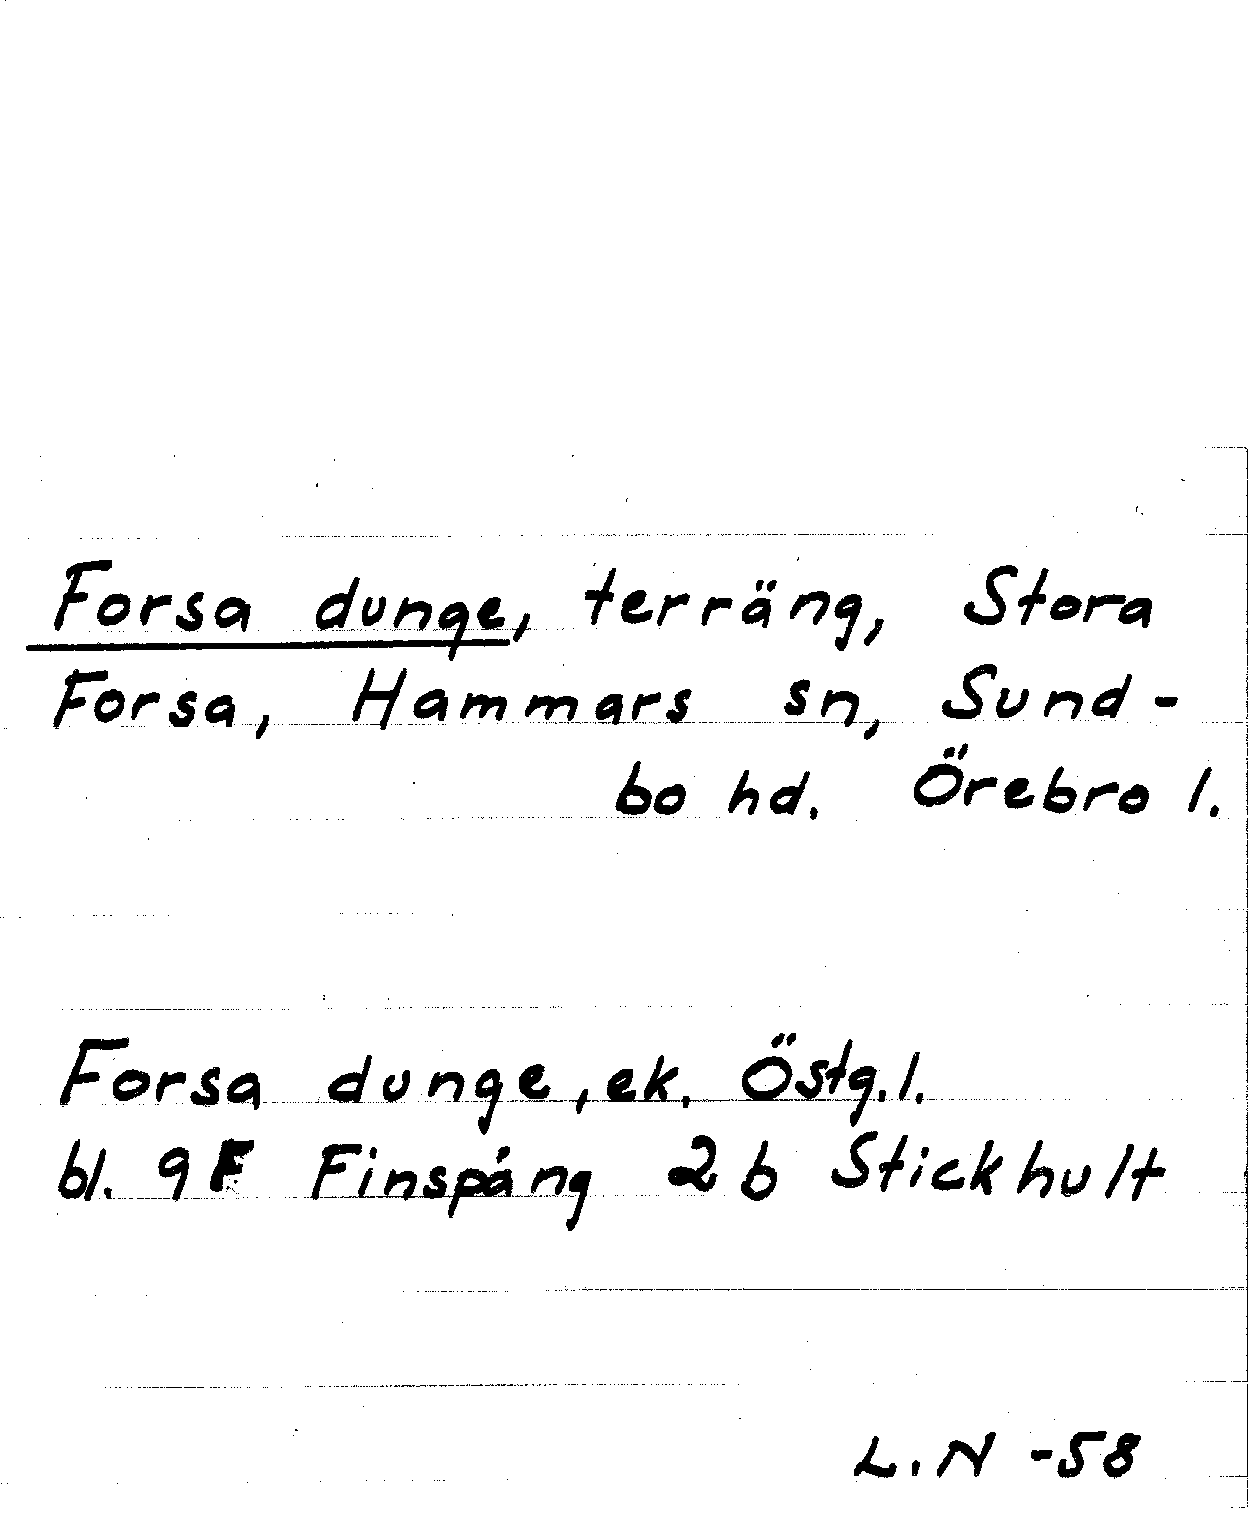 Forsa dunge, terräng, Stora
Forsa, Hammars sn, Sund-
bo hd. Örebro l.
Forsa dunge, ek. Östg. l.
bl. 9F Finspång 2b Stickhult
L.N -58